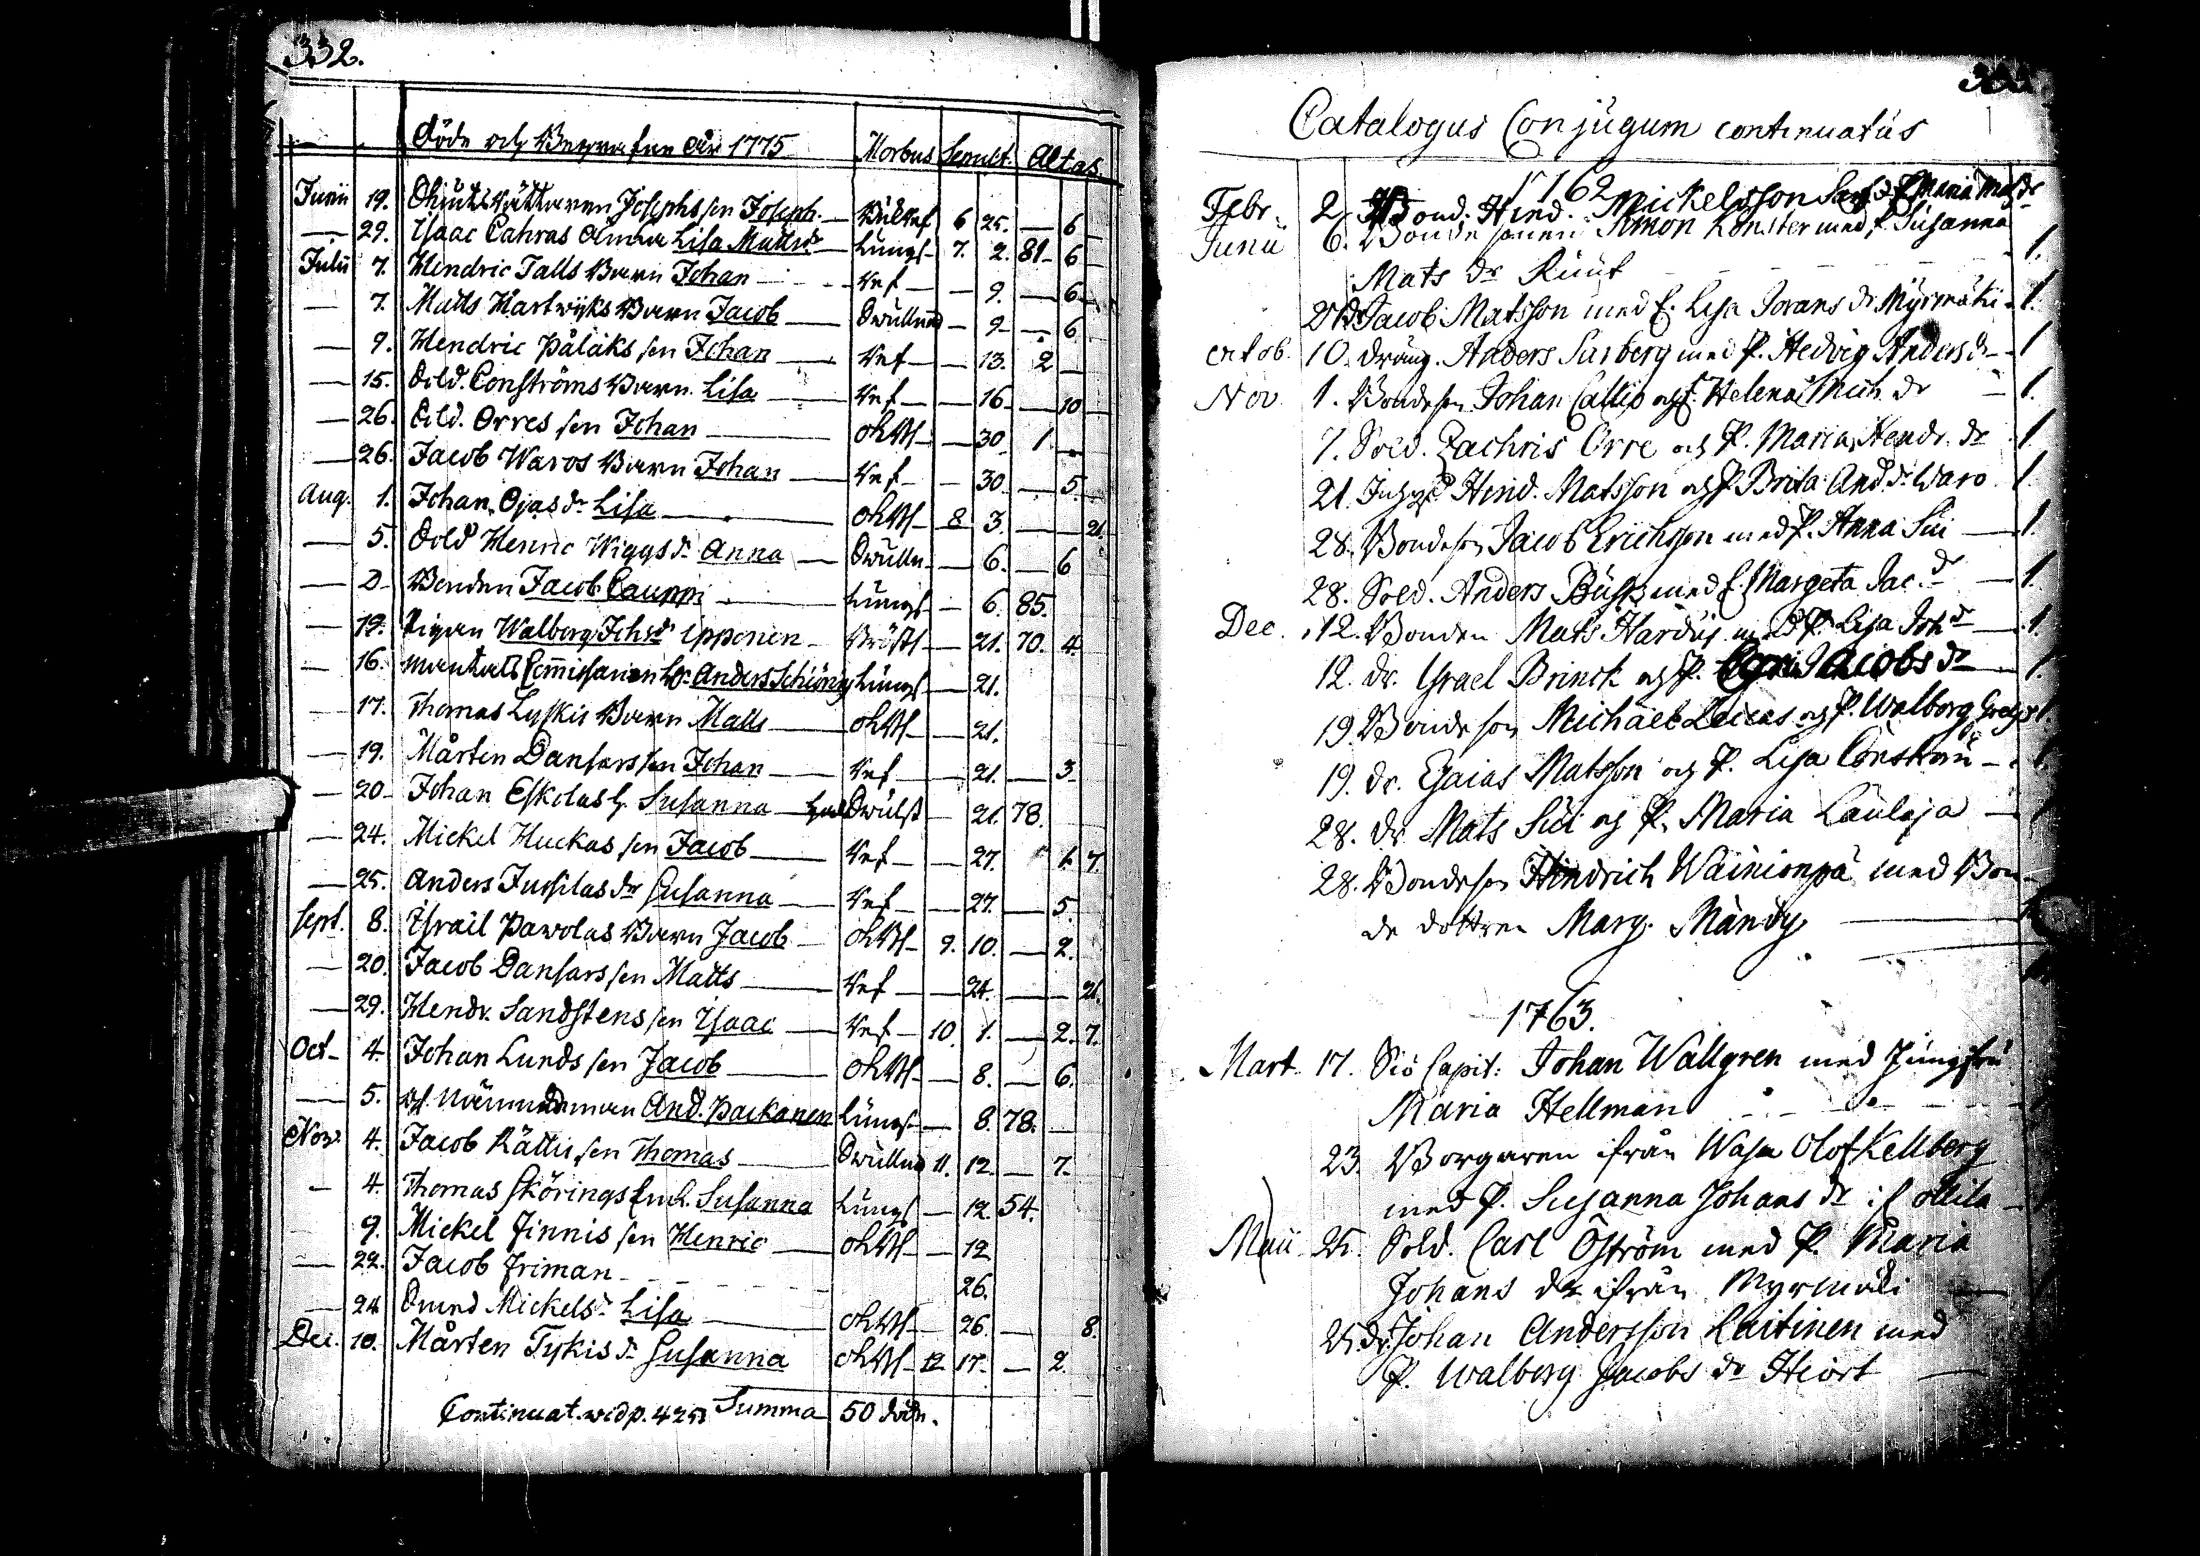 332.
Döde och Begrafne År 1775 Morbus Sepult. Ætas.
Junii 19. Josephs son Joseph. 6 25. — 6
— 29. Isaac Cahras Änka Lisa Matts dr Lungs- 7. 2. 81 6
Julii 7. Hendric Talls Barn Johan — Kef — 9. — 6
— 7. Matts Hartwyks Barn Jacob — — 9 — 6
— 9. Hendric Pålaks son Johan — Kef — 13. 2
— 15. Sold. Conströms Barn Lisa — Kef — 16 — 10
— 26. Sold. Orres son Johan — — 30 1.
— 26. Jacob Waros Barn Johan — Kef — 30 — 5
Aug. 1. Johan Ojas dr Lisa — — 8 3. — 21.
— 5. Sold Henric Wiggs dr Anna — — 6. — 6
— D Bonden Jacob Cauppi — Lungs — 6. 85.
— 12. Pigan Walborg Johs dr Ipponen — — 21. 70. 4.
— 16. Mantals Commissarien Hr Anders Schiöring Lungs — 21.
— 17. Thomas Lyskis Barn Matts — — 21.
— 19. Mårten Dansars son Johan — Kef — 21. — 3.
— 20 Johan Eskolas h. Susanna — — 21. 78.
— 24. Mickel Huckas son Jacob — Kef — 27. 1. 7.
— 25. Anders Jussilas dr Susanna — Kef — 27. — 5.
Sept. 8. Israil Pawolas Barn Jacob — 9. 10. — 2.
— 20. Jacob Dansars son Matts — Kef — 24. — 21.
— 29. Hendr. Sandstens son Isaac — Kef — 10. 1. — 2. 7.
Oct 4. Johan Lunds son Jacob — — 8. — 6.
— 5. Nämndeman And. Packanen Lungs — 8. 78.
Nov. 4. Jacob Rättis son Thomas — 11. 12. — 7.
— 4. Thomas Skörings Susanna Lungs — 12. 54.
9. Mickel Finnis son Henric — — 12
— 22. Jacob Friman 26.
— 24 Mickels dr Lisa — — 26. — 8.
Dec. 10. Mårten Tykis dr Susanna — 12 17. — 2.
Continuat. wid p. 425 Summa 50 döde.
Catalogus Conjugum continuatus
1762
Febr. 2. Bond. Hind. Mickelsson P. Maria
Junii 6. Bonde sonen Simon Konster med P. Susanna
Mats dr Ruut 1.
Jacob Matsson med P. Lisa Jorans dr Myrmäki 1.
Octob. 10. dräng. Anders Surberg med P. Hedvig Anders dr 1
Nov. 1. Bondeson Johan Callis och P. Helena Mich. dr 1.
7. Sold. Zachris Orre och P. Maria Hendr. dr 1.
21. Hind. Matsson och P. Brita And. dr Waro 1
28. Bondeson Jacob Erichsson med P. Anna Sui — 1.
28. Sold. Anders Busk med P. Margeta Jac. dr — 1.
Dec. 12. Bonden Mats Hardus med P. Lisa Joh dr — 1.
12. dr. Israel Brinck och P. Jacobs dr — 1.
19. Bondeson Michael Lucas och P. Walborg 1.
19. dr. Esaias Matsson och P. Lisa Conström — 1.
28. dr. Mats Sui och P. Maria Laulaja — 1
28. Bondeson Hindrich Wäinionpä med Bon-
de dottren Marg. Mändy — 1
1763.
Mart. 17. Siö Capit: Johan Wallgren med Jungfru
Maria Hellman
23. Borgaren ifrån Wasa Olof Kellberg
med P. Susanna Johans dr
Maii 25. Sold. Carl Öström med P. Maria
Johans dr ifrån Myrmäki —
25. dr. Johan Andersson Laitinen med
P. Walborg Jacobs dr Hiort —